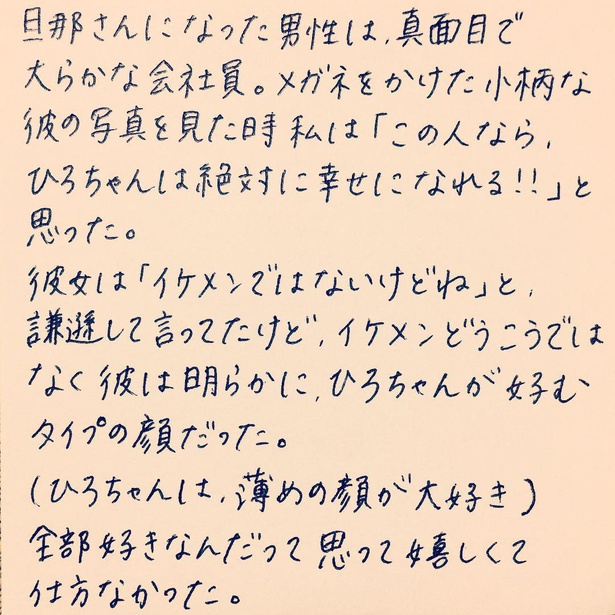 旦那さんになった男性は、真面目で
大らかな会社員。メガネをかけた小柄な
彼の写真を見た時私は「この人なら、
ひろちゃんは絶対に幸せになれる!!」と
思った。
彼女は「イケメンではないけどね」と、
謙遜して言ってたけど、イケメンどうこうでは
なく彼は明らかに、ひろちゃんが好む
タイプの顔だった。
(ひろちゃんは、薄めの顔が大好き)
全部好きなんだって思って嬉しくて
仕方なかった。